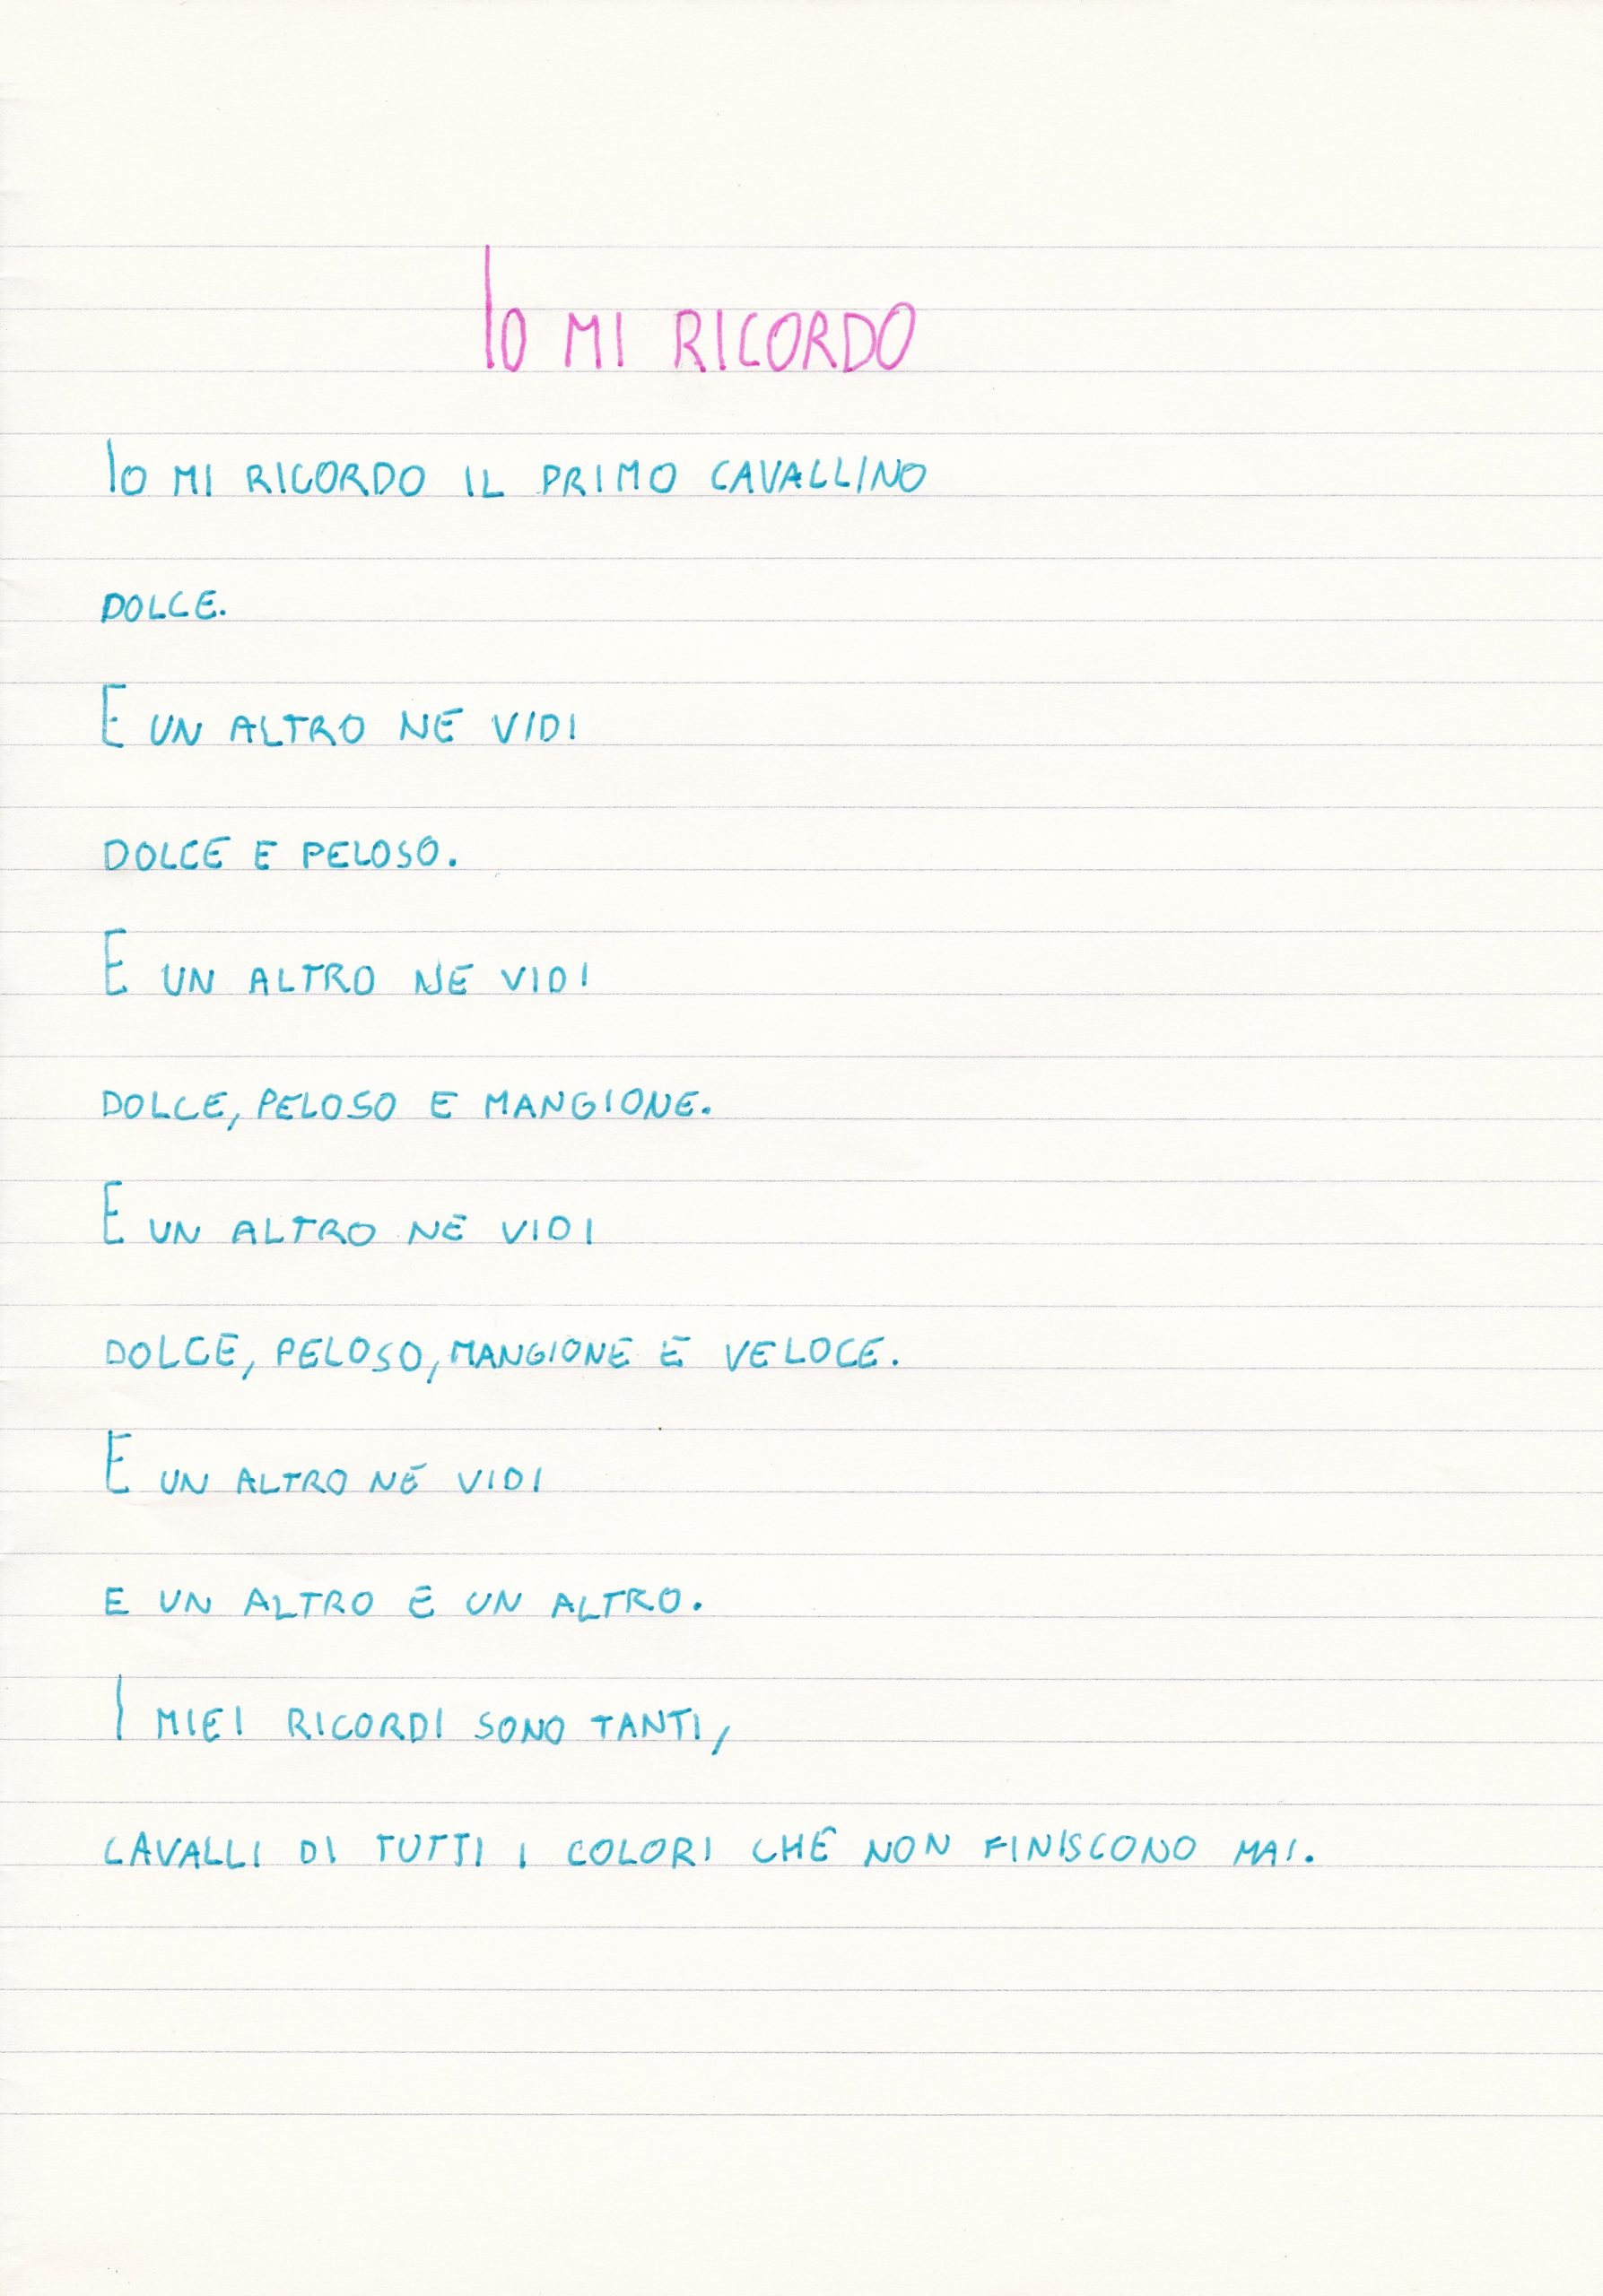 IO MI RICORDO
IO MI RICORDO IL PRIMO CAVALLINO
DOLCE.
E UN ALTRO NE VIDI
DOLCE E PELOSO.
E UN ALTRO NE VIDI
DOLCE, PELOSO E MANGIONE.
E UN ALTRO NE VIDI
DOLCE, PELOSO, MANGIONE E VELOCE.
E UN ALTRO NE VIDI
E UN ALTRO E UN ALTRO.
I MIEI RICORDI SONO TANTI,
CAVALLI DI TUTTI I COLORI CHE NON FINISCONO MAI.